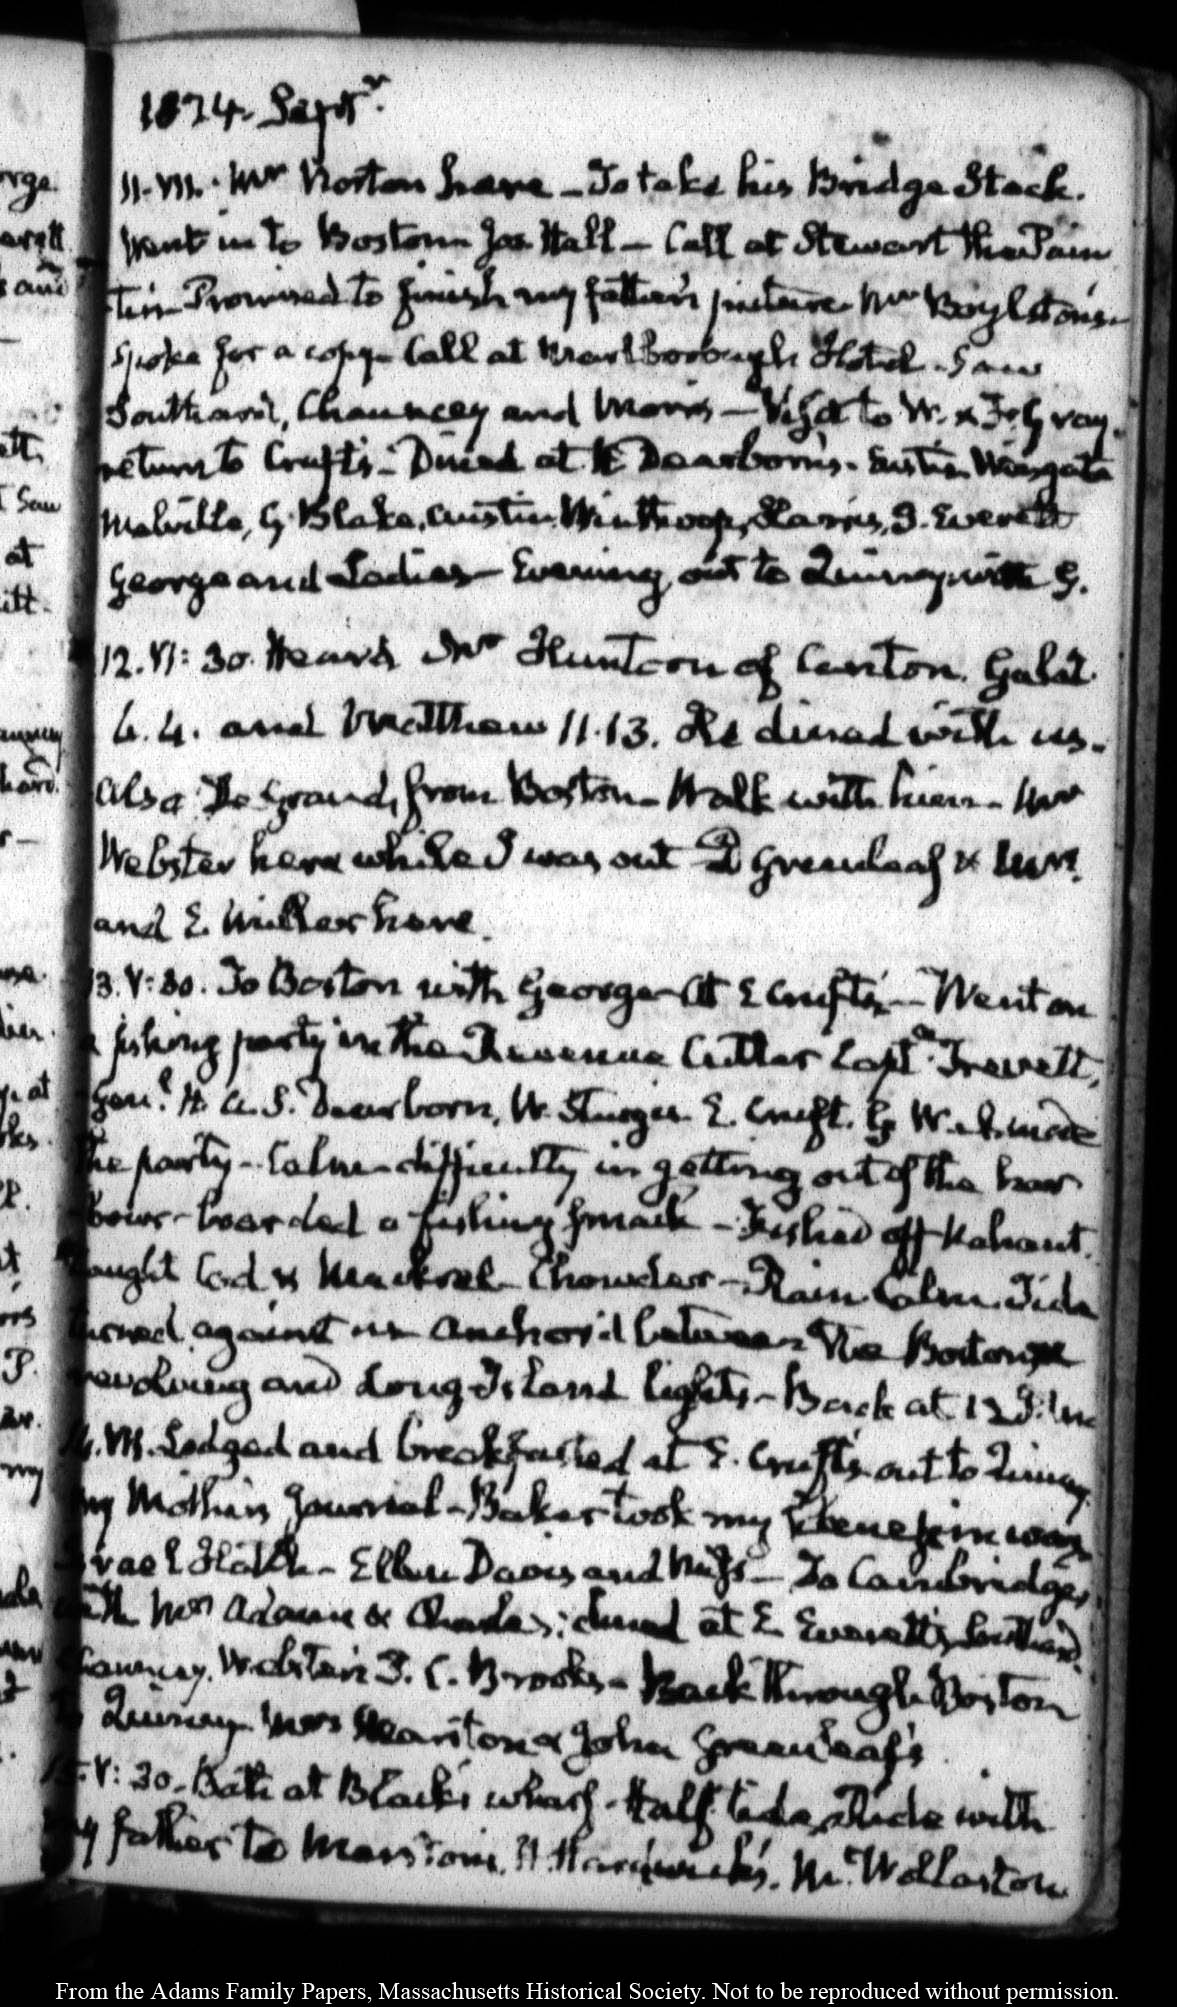 1824. Septr.
11. VI. Mr Norton here — To take his Bridge Stock.
Went in to Boston Jos. Hall — Call at Stewart the Pain
ter. Promised to finish my father's picture Mr Boylston's
Spoke for a copy. Call at Marlborough Hotel. Saw
Southard, Chauncey and Morris — Visit to W. & F. Gray.
return to Crufts. Dined at Dearborn's. Wingate
Melville, G. Blake, Austin, Winthrop, Harris, Everett
George and Ladies — Evening out to Quincy with G.
12. VI: 30. Heard Mr Huntoon of Canton. Galat.
4. 4. and Matthew 11. 13. He dined with us.
also De Grand, from Boston — Walk with him — Mr
Webster here while I was out D Greenleaf & Mrs.
and E. Miller here.
13. V: 30. To Boston with George — At E Cruft's — Went on
a fishing party in the Revenue Cutter Captn. Trevett,
Genl. H. A. S. Dearborn, W. Sturgis E. Cruft. G W. A. made
the party — Calm — difficulty in getting out of the har
bour — boarded a fishing smack — Fished off Nahant.
Caught Cod & Mackrel — Chowder — Rain. Calm. Tide
turned against us anchor'd between the Boston
revolving and Long-Island lights — Back at 12
14. VI. Lodged and breakfasted at E. Cruft's out to Quincy
My Mother's Journal — Baker took my way
Israel — Ellen Davis and — To Cambridge,
with Mrs Adams & Charles; dined at E Everett's Southard,
Chauncey, Webster P. C. Brooks — Back through Boston
To Quincy. Mrs Marston & John Greenleaf's
15. V: 30. Bath at Black's wharf. Half tide, Ride with
My father to Marston's, H. Hardwick's. Mt. Wollaston
From the Adams Family Papers, Massachusetts Historical Society. Not to be reproduced without permission.